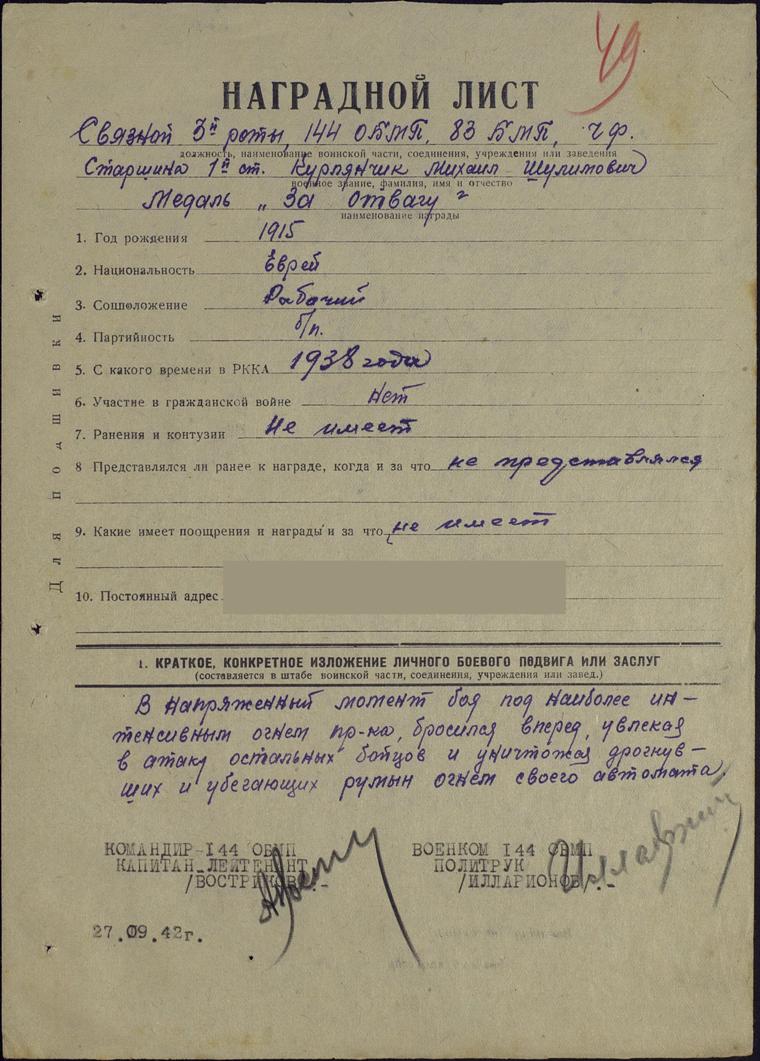 49
НАГРАДНОЙ ЛИСТ
Связной 3й роты, 144 ОБМП, 83 БМП, ЧФ.
должность, наименование воинской части, соединения, учреждения или заведения
Старшина 1й ст. Курлянчик Михаил Шулимович
военное звание, фамилия, имя и отчество
Медаль „За Отвагу"
наименование награды
1. Год рождения 1915
2. Национальность Еврей
3. Соцположение Рабочий
4. Партийность б/п.
5. С какого времени в РККА 1938 года
6. Участие в гражданской войне Нет
7. Ранения и контузии Не имеет
8 Представлялся ли ранее к награде, когда и за что не представлялся
9. Какие имеет поощрения и награды и за что не имеет
10. Постоянный адрес
Для подшивки
1. КРАТКОЕ, КОНКРЕТНОЕ ИЗЛОЖЕНИЕ ЛИЧНОГО БОЕВОГО ПОДВИГА ИЛИ ЗАСЛУГ
(составляется в штабе воинской части, соединения, учреждения или завед.)
В напряженный момент боя под наиболее ин-
тенсивным огнем пр-ка, бросился вперед, увлекая
в атаку остальных бойцов и уничтожая дрогнув-
ших и убегающих румын огнем своего автомата.
КОМАНДИР-I44 ОБМП ВОЕНКОМ I44 ОБМП
КАПИТАН-ЛЕЙТЕНАНТ ПОЛИТРУК
/ВОСТРИКОВ/.- /ИЛЛАРИОНОВ/.-
27.09.42г.